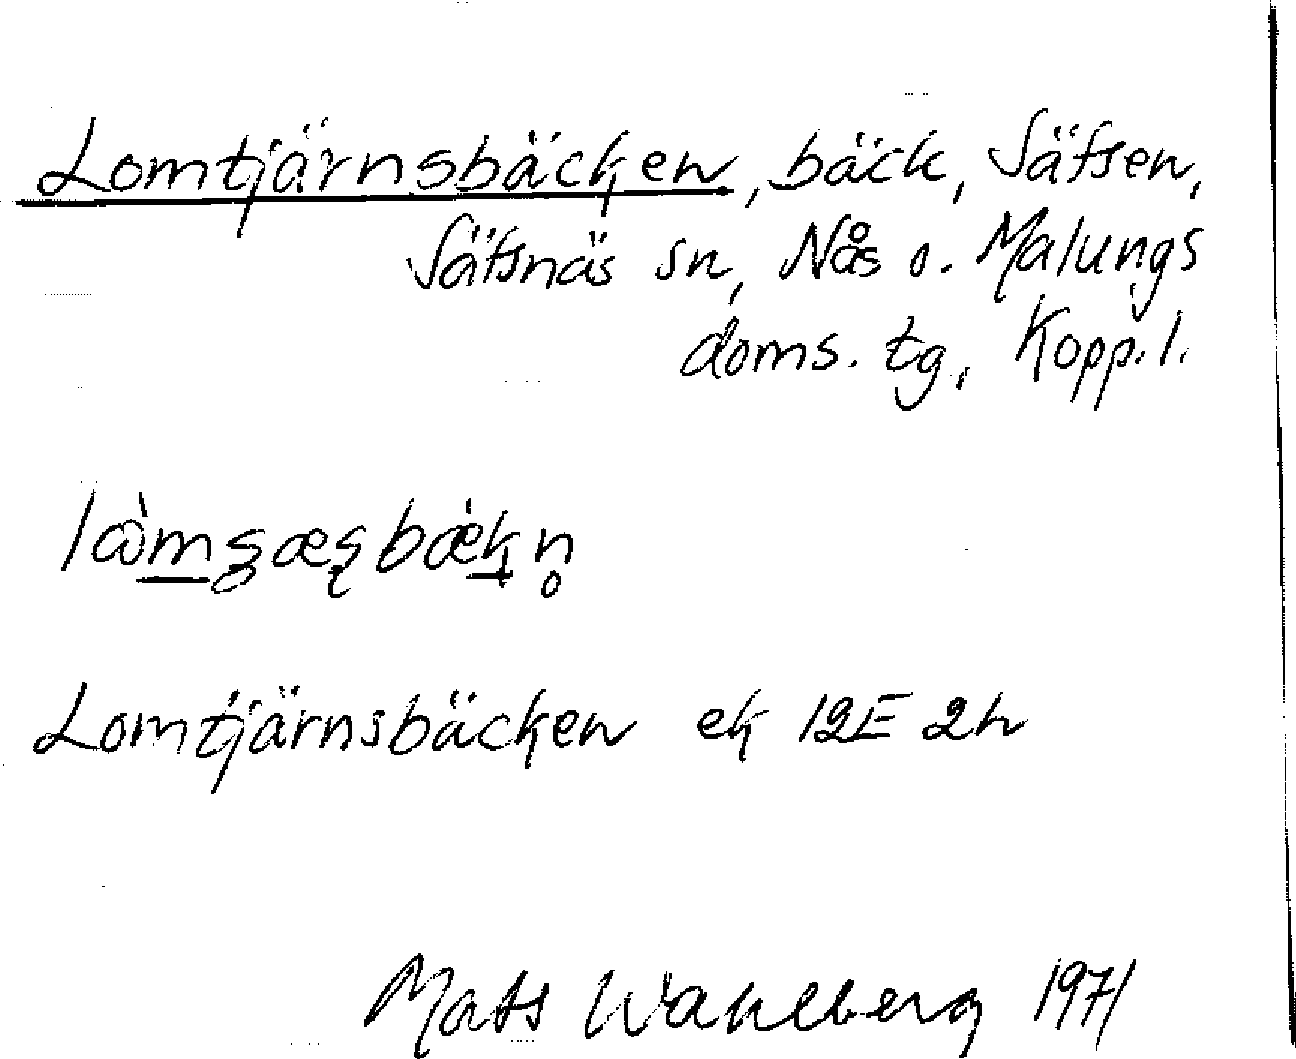 Lomtjärnsbäcken, bäck, Säfsen,
Säfsnäs sn, Nås o. Malungs
doms. tg, Kopp. l.
Lomtjärnsbäcken ek 12E 2h
Mats Wahlberg 1971